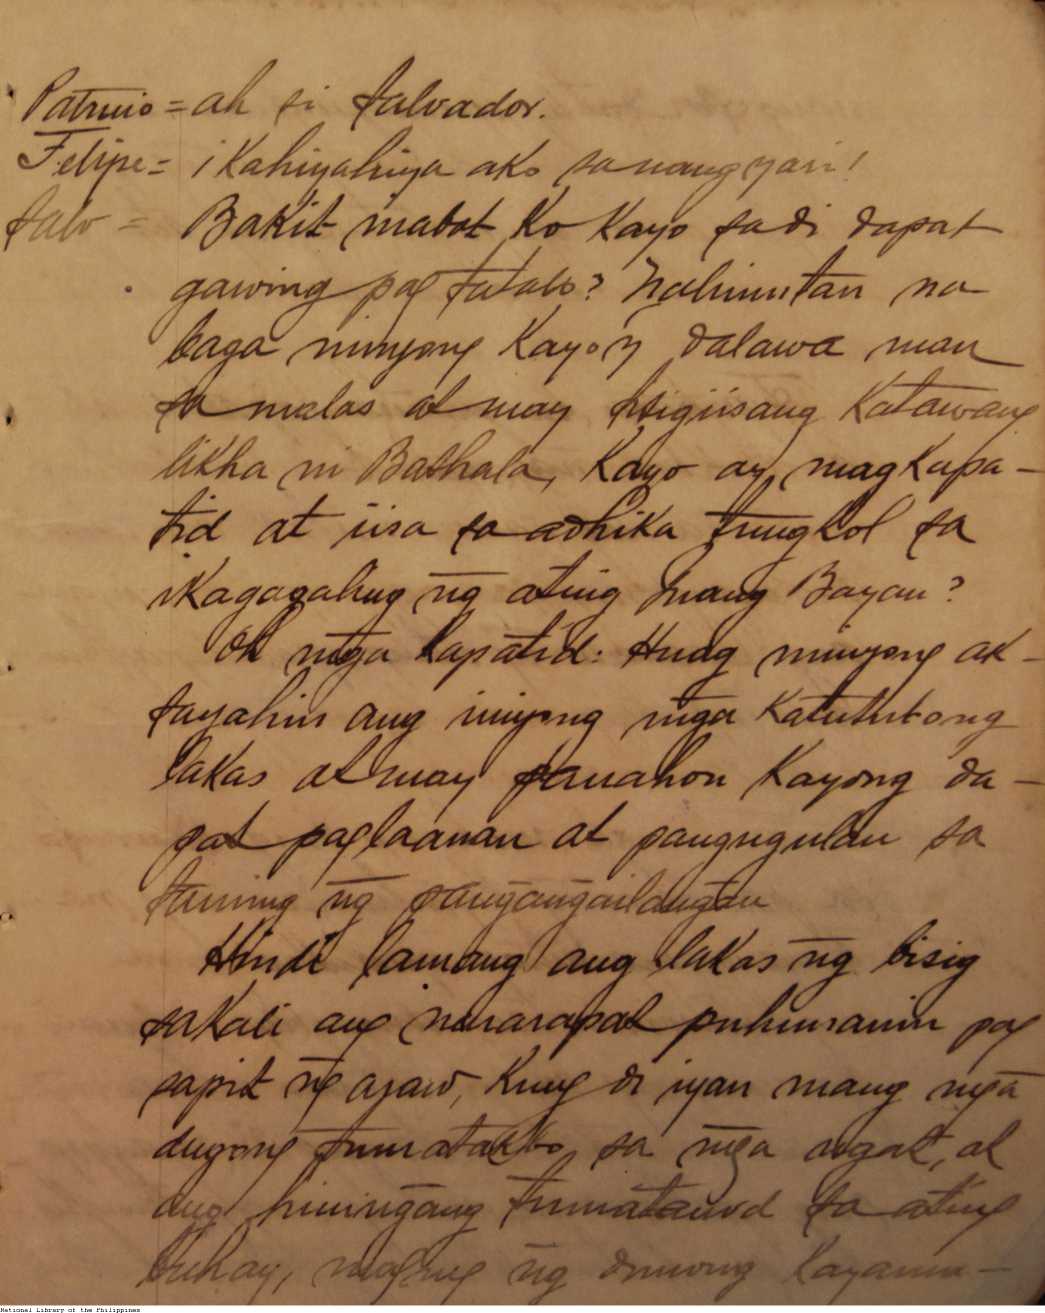 Patricio = ah si Salvador.
Felipe = ikahiyahiya ako sa nangyari!
Salv = Bakit inabot ko kayo sa di dapat
gawing pag tatalo? Nalimutan na
baga ninyong kayo'y dalawa man
sa malas at may tsigiisang katawang
likha ni Bathala, kayo ay magkapa-
tid at iisa sa adhika tungkol sa
ikagagaling ng ating Inang Bayan?
Oh mga kapatid: Huag ninyong ak-
sayahin ang inyong mga katutubong
lakas at may panahon kayong da-
pat paglaanan at pangugulan sa
taning ng pangangailangan
Hindi lamang ang lakas ng bisig
sakali ang nararapat puhunanin pag
sapit ng araw, kung di iyan mang mga
dugong tumatakbo sa mga ugat, at
ang hiningang tumatawid sa ating
buhay, ng dunong
National Library of the Philippines